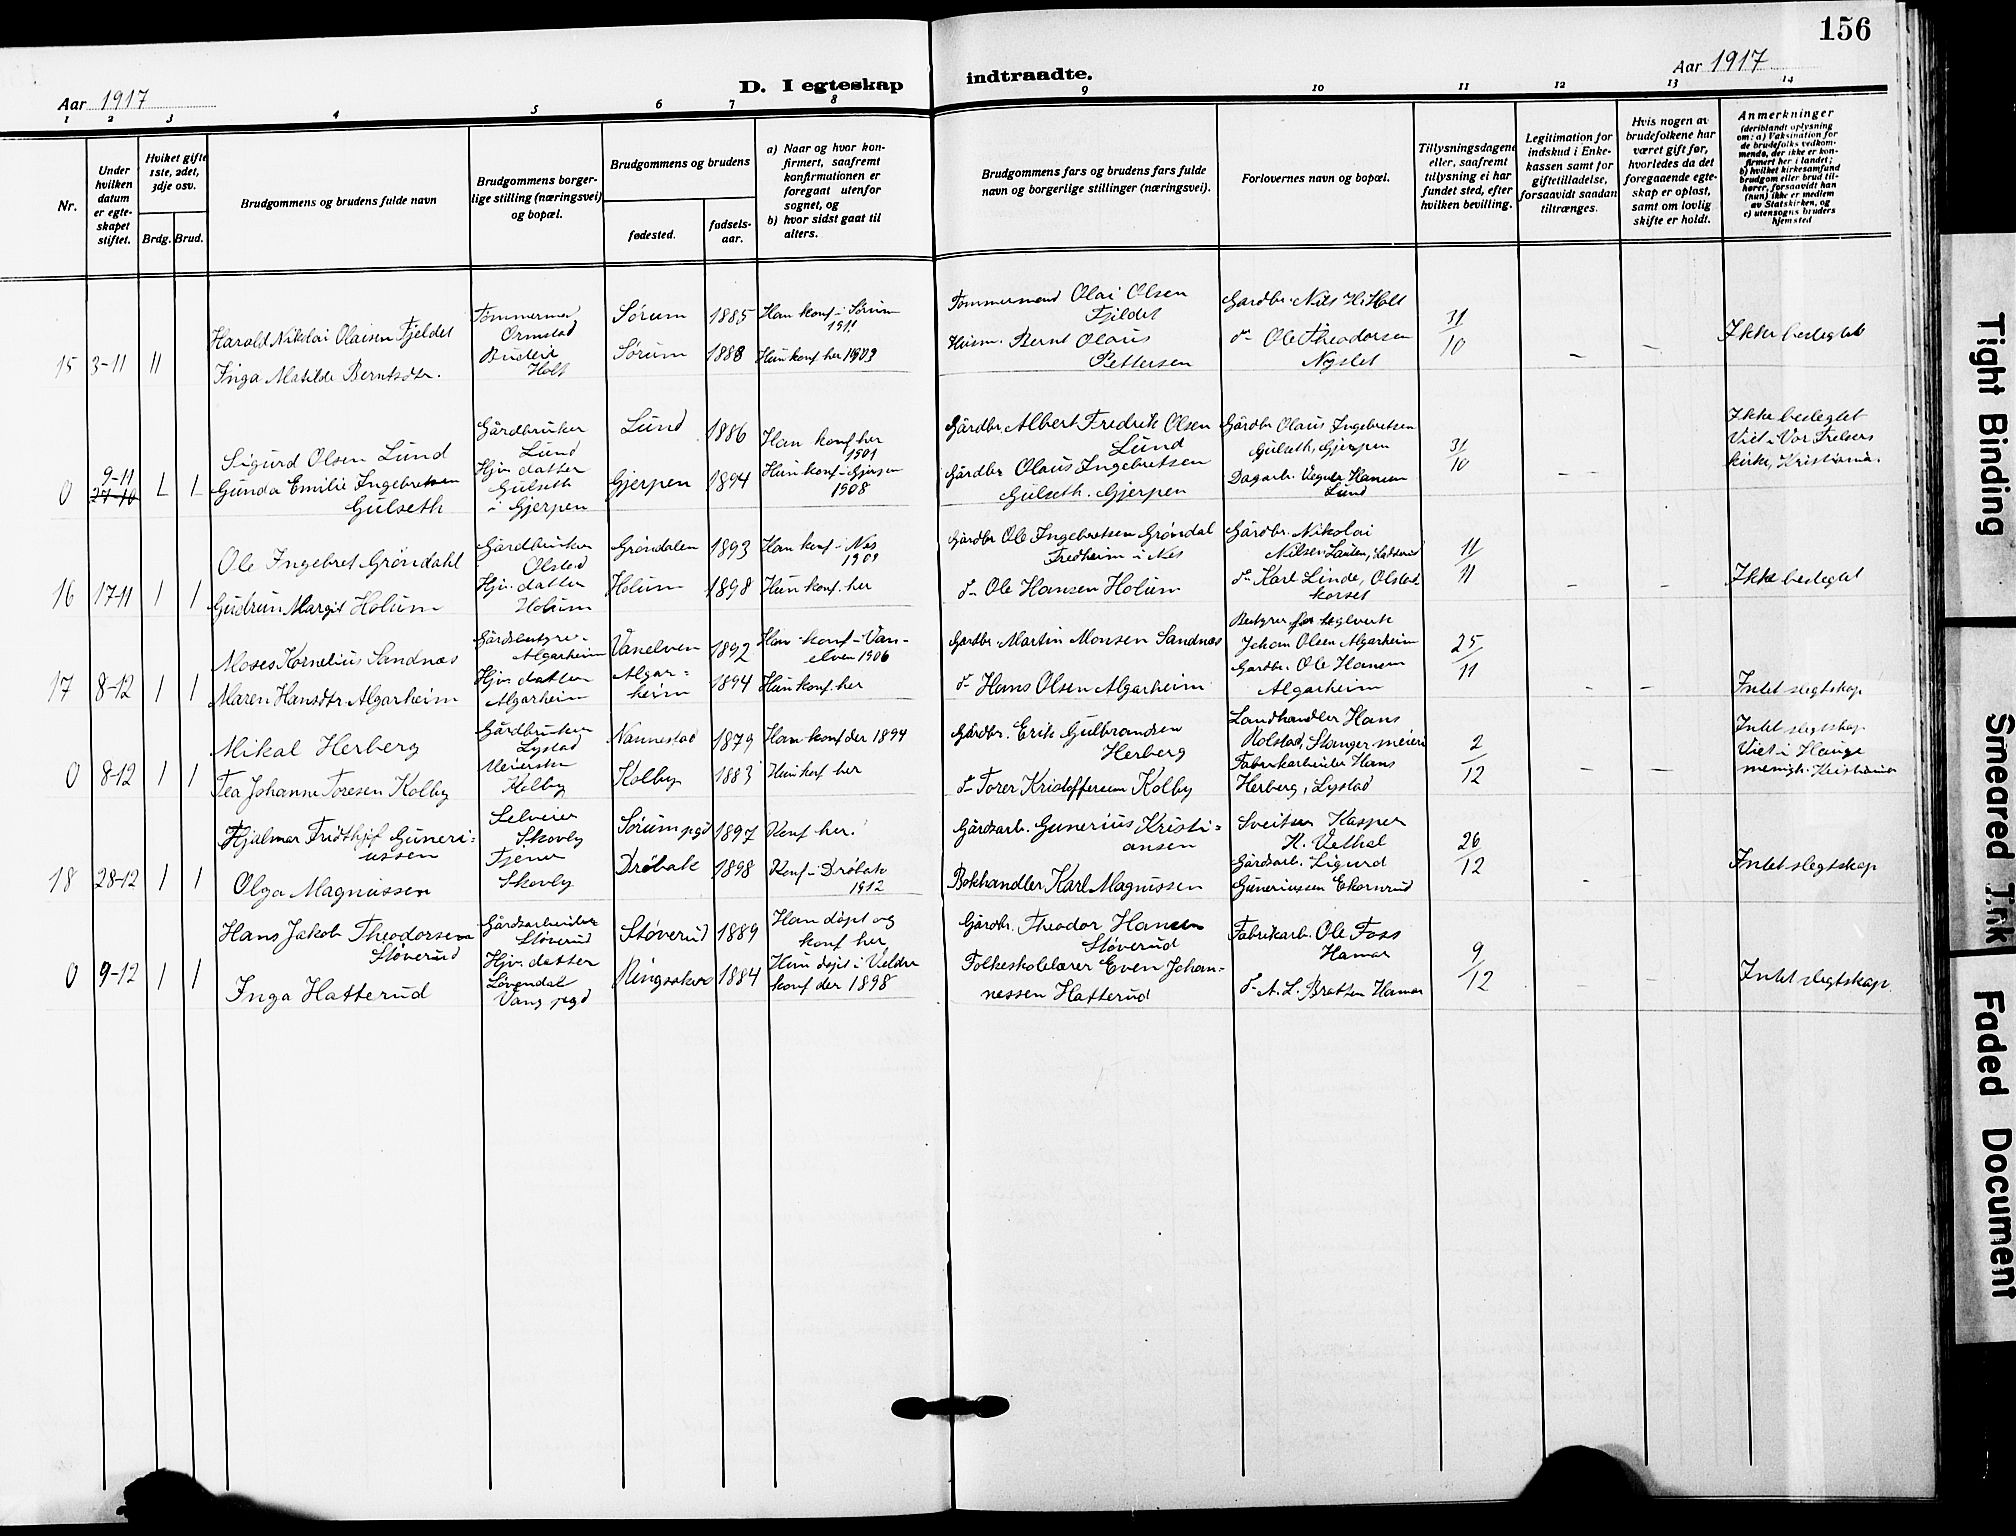 156
Aar 1917
D. I egteskap
indtraadte.
Aar 1917
1 2 3 4 5 6 7 8 9 10 11 12 13 14
Nr.
Under hvilken datum er egteskapet stiftet.
Hvilket gifte 1ste, 2det, 3dje osv.
Brdg. Brud.
Brudgommens og brudens fulde navn
Brudgommens borgerlige stilling (næringsvei) og bopæl.
Brudgommens og brudens
fødested.
fødselsaar.
a) Naar og hvor konfirmert, saafremt konfirmationen er foregaat utenfor sognet, og
b) hvor sidst gaat til alters.
Brudgommens fars og brudens fars fulde navn og borgerlige stillinger (næringsvei).
Forlovernes navn og bopæl.
Tillysningsdagene eller, saafremt tillysning ei har fundet sted, efter hvilken bevilling.
Legitimation for indskud i Enkekassen samt for giftetilladelse, forsaavidt saadan tiltrænges.
Hvis nogen av brudefolkene har været gift før, hvorledes da det foregaaende egteskap er opløst, samt om lovlig skifte er holdt.
Anmerkninger
(deriblandt oplysning om: a) Vaksination for de brudefolks vedkommende, der ikke er konfirmert her i landet; b) hvilket kirkesamfund brudgom eller brud tilhører, forsaavidt han (hun) ikke er medlem av Statskirken, og c) utensogns bruders hjemsted
15 3-11 II
Harald Nikolai Olaisen Fjeldet
Inga Matilde Berntsdtr.
Tømmermand
Ormstad
Holt
Sørum 1885 Han konf. i Sørum
1911
Sørum 1888 Hun konf her 1903
Tømmermand Olai Olsen
Fjeldet
Husm. Bernt Olaus
Pettersen
Gardbr. Nils H. Holt
d- Ole Theodorsen
Nyslet
31/10 - -
Ikke beslegtet
0 9-11
27-10 1 1
Sigurd Olsen Lund
Gunda Emilie Ingebretsen
Gulseth
Gårdbruker
Lund
Hjv. datter
Gulseth
i Gjerpen
Lund 1886 Han konf her
1901
Gjerpen 1894 Hun konf. i Gjerpen
1908
Gårdbr Albert Fredrik Olsen
Lund
Gårdbr Olaus Ingebretsen
Gulseth. Gjerpen
Gårdbr Olaus Ingebretsen
Gulseth, Gjerpen
Dagarb. Hansen
Lund
31/10 - -
Ikke beslegtet
Viet i Vor Frelsers
kirke, Kristiania.
16 17-11 1 1
Ole Ingebret Grøndahl
Gudrun Margit Holum
Gårdbruker
Olstad
Hjv. datter
Holum
Grøndalen 1893 Han konf. i Nes
1909
Holum 1898 Hun konf. her
Gårdbr Ole Ingebretsen Grøndal
Fredheim i Nes
d- Ole Hansen Holum
Gårdbr. Nikolai
Nilsen
d- Karl Linde, Olstad
korset
11/11 - -
Ikke beslegtet
17 8-12 1 1
Moses Kornelius Sandnæs
Maren Hansdtr Algarheim
Gårdbestyrer
Algarheim
Hjv. datter
Algarheim
Vanelven 1892 Han konf. i Van-
elven 1906
Algar-
heim 1894 Hun konf. her
Gardbr. Martin Monsen Sandnæs
d- Hans Olsen Algarheim
Bestyrer for teglverk
Johan Olsen Algarheim
Gardbr. Ole Hansen
Algarheim
25/11 - -
Intet slegtskap
0 8-12 1 1
Mikal Herberg
Tea Johanne Toresen Kolby
Gårdbruker
Lystad
Meierske
Kolby
Nannestad 1879 Han konf der 1894
Kolby 1883 Hun konf her
Gårdbr. Erik Gulbrandsen
Herberg
d- Torer Kristoffersen Kolby
Landhandler Hans
Rolstad, Stanger meieri
Fabrikarbeider Hans
Herberg, Lystad
2/12 - -
Intet slegtskap
Viet i Hauge
menigh. Kristiania
18 28-12 1 1
Hjalmar Fridthjof Guneri-
ussen
Olga Magnussen
Selveier
Skovly
Tjener
Skovly
Sørum pgd 1897 Konf her.
Drøbak 1898 Konf. i Drøbak
1912
Gårdsarb. Gunerius Kristi-
ansen
Bokhandler Karl Magnussen
Sveitser Kasper
H. Vethal
Gårdsarb. Sigurd
Guneriussen Ekornrud
26/12 -
Intet slegtskap
0 9-12 1 1
Hans Jakob Theodorsen
Støverud
Inga Hatterud
Gårdsarbeider
Støverud
Hjv. datter
Løvendal
Vang pgd
Støverud 1889 Han døpt og
konf her
Ringsaker 1884 Hun døpt i Veldre
konf der 1898
Gårdbr. Theodor Hansen
Støverud
Folkeskolelærer Even Johan-
nessen Hatterud
Fabrikarb. Ole Foss
Hamar
d- A. L. Bratten Hamar
9/12 - -
Intet slegtskap.
Tight Binding
Smeared Ink
Faded Document